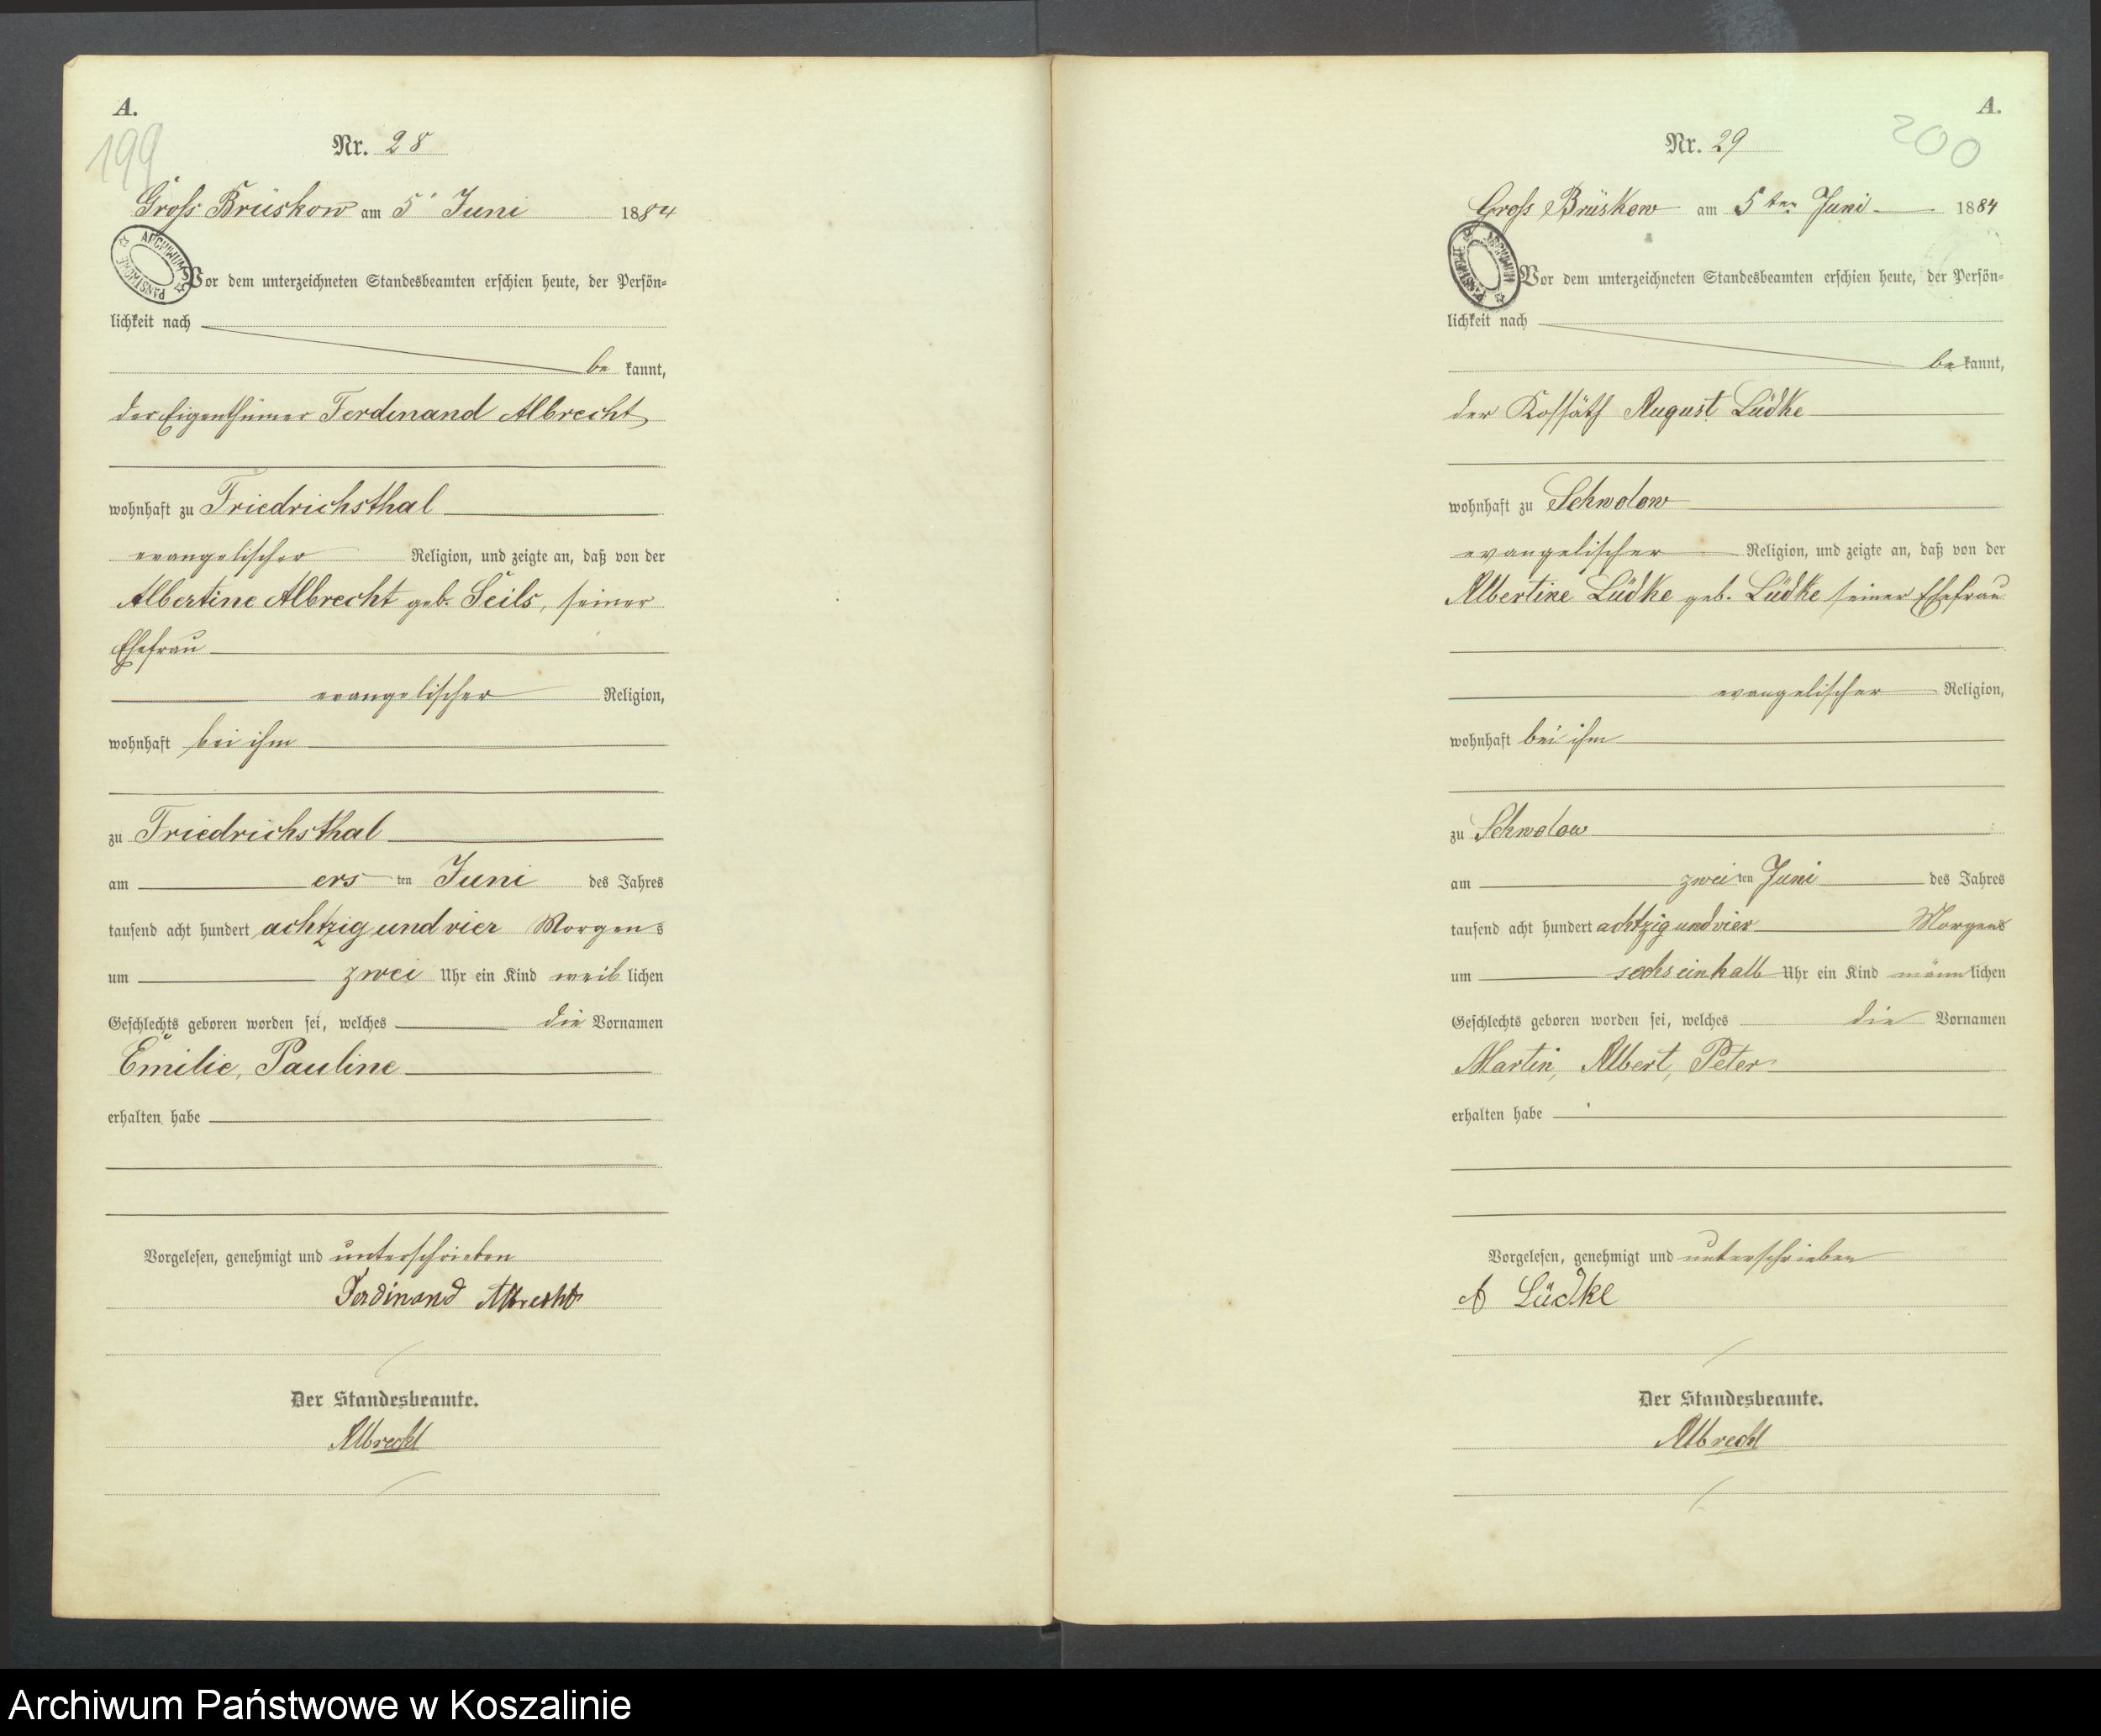 A.
199
Nr. 28
Gross Brüskow am 5' Juni 1884
ARCHIWUM PAŃSTWOWE
Vor dem unterzeichneten Standesbeamten erschien heute, der Persön=
lichkeit nach
be kannt,
der Eigenthümer Ferdinand Albrecht
wohnhaft zu Friedrichsthal
evangelischer Religion, und zeigte an, daß von der
Albertine Albrecht geb. Seils, seiner
Ehefrau
evangelischer Religion,
wohnhaft bei ihm
zu Friedrichsthal
am ers ten Juni des Jahres
tausend acht hundert achtzig und vier Morgens
um zwei Uhr ein Kind weib lichen
Geschlechts geboren worden sei, welches die Vornamen
Emilie, Pauline
erhalten habe
Vorgelesen, genehmigt und unterschrieben
Ferdinand Albrecht
Der Standesbeamte.
Albrecht
A.
200
Nr. 29
Gross Brüskow am 5ten Juni 1884
ARCHIWUM PAŃSTWOWE
Vor dem unterzeichneten Standesbeamten erschien heute, der Persön=
lichkeit nach
be kannt,
der Kossäth August Lüdke
wohnhaft zu Schwolow
evangelischer Religion, und zeigte an, daß von der
Albertine Lüdke geb. Lüdke seiner Ehefrau
evangelischer Religion,
wohnhaft bei ihm
zu Schwolow
am zwei ten Juni des Jahres
tausend acht hundert achtzig und vier Morgens
um sechseinhalb Uhr ein Kind männ lichen
Geschlechts geboren worden sei, welches die Vornamen
Martin, Albert, Peter
erhalten habe
Vorgelesen, genehmigt und unterschrieben
A Lüdke
Der Standesbeamte.
Albrecht
Archiwum Państwowe w Koszalinie